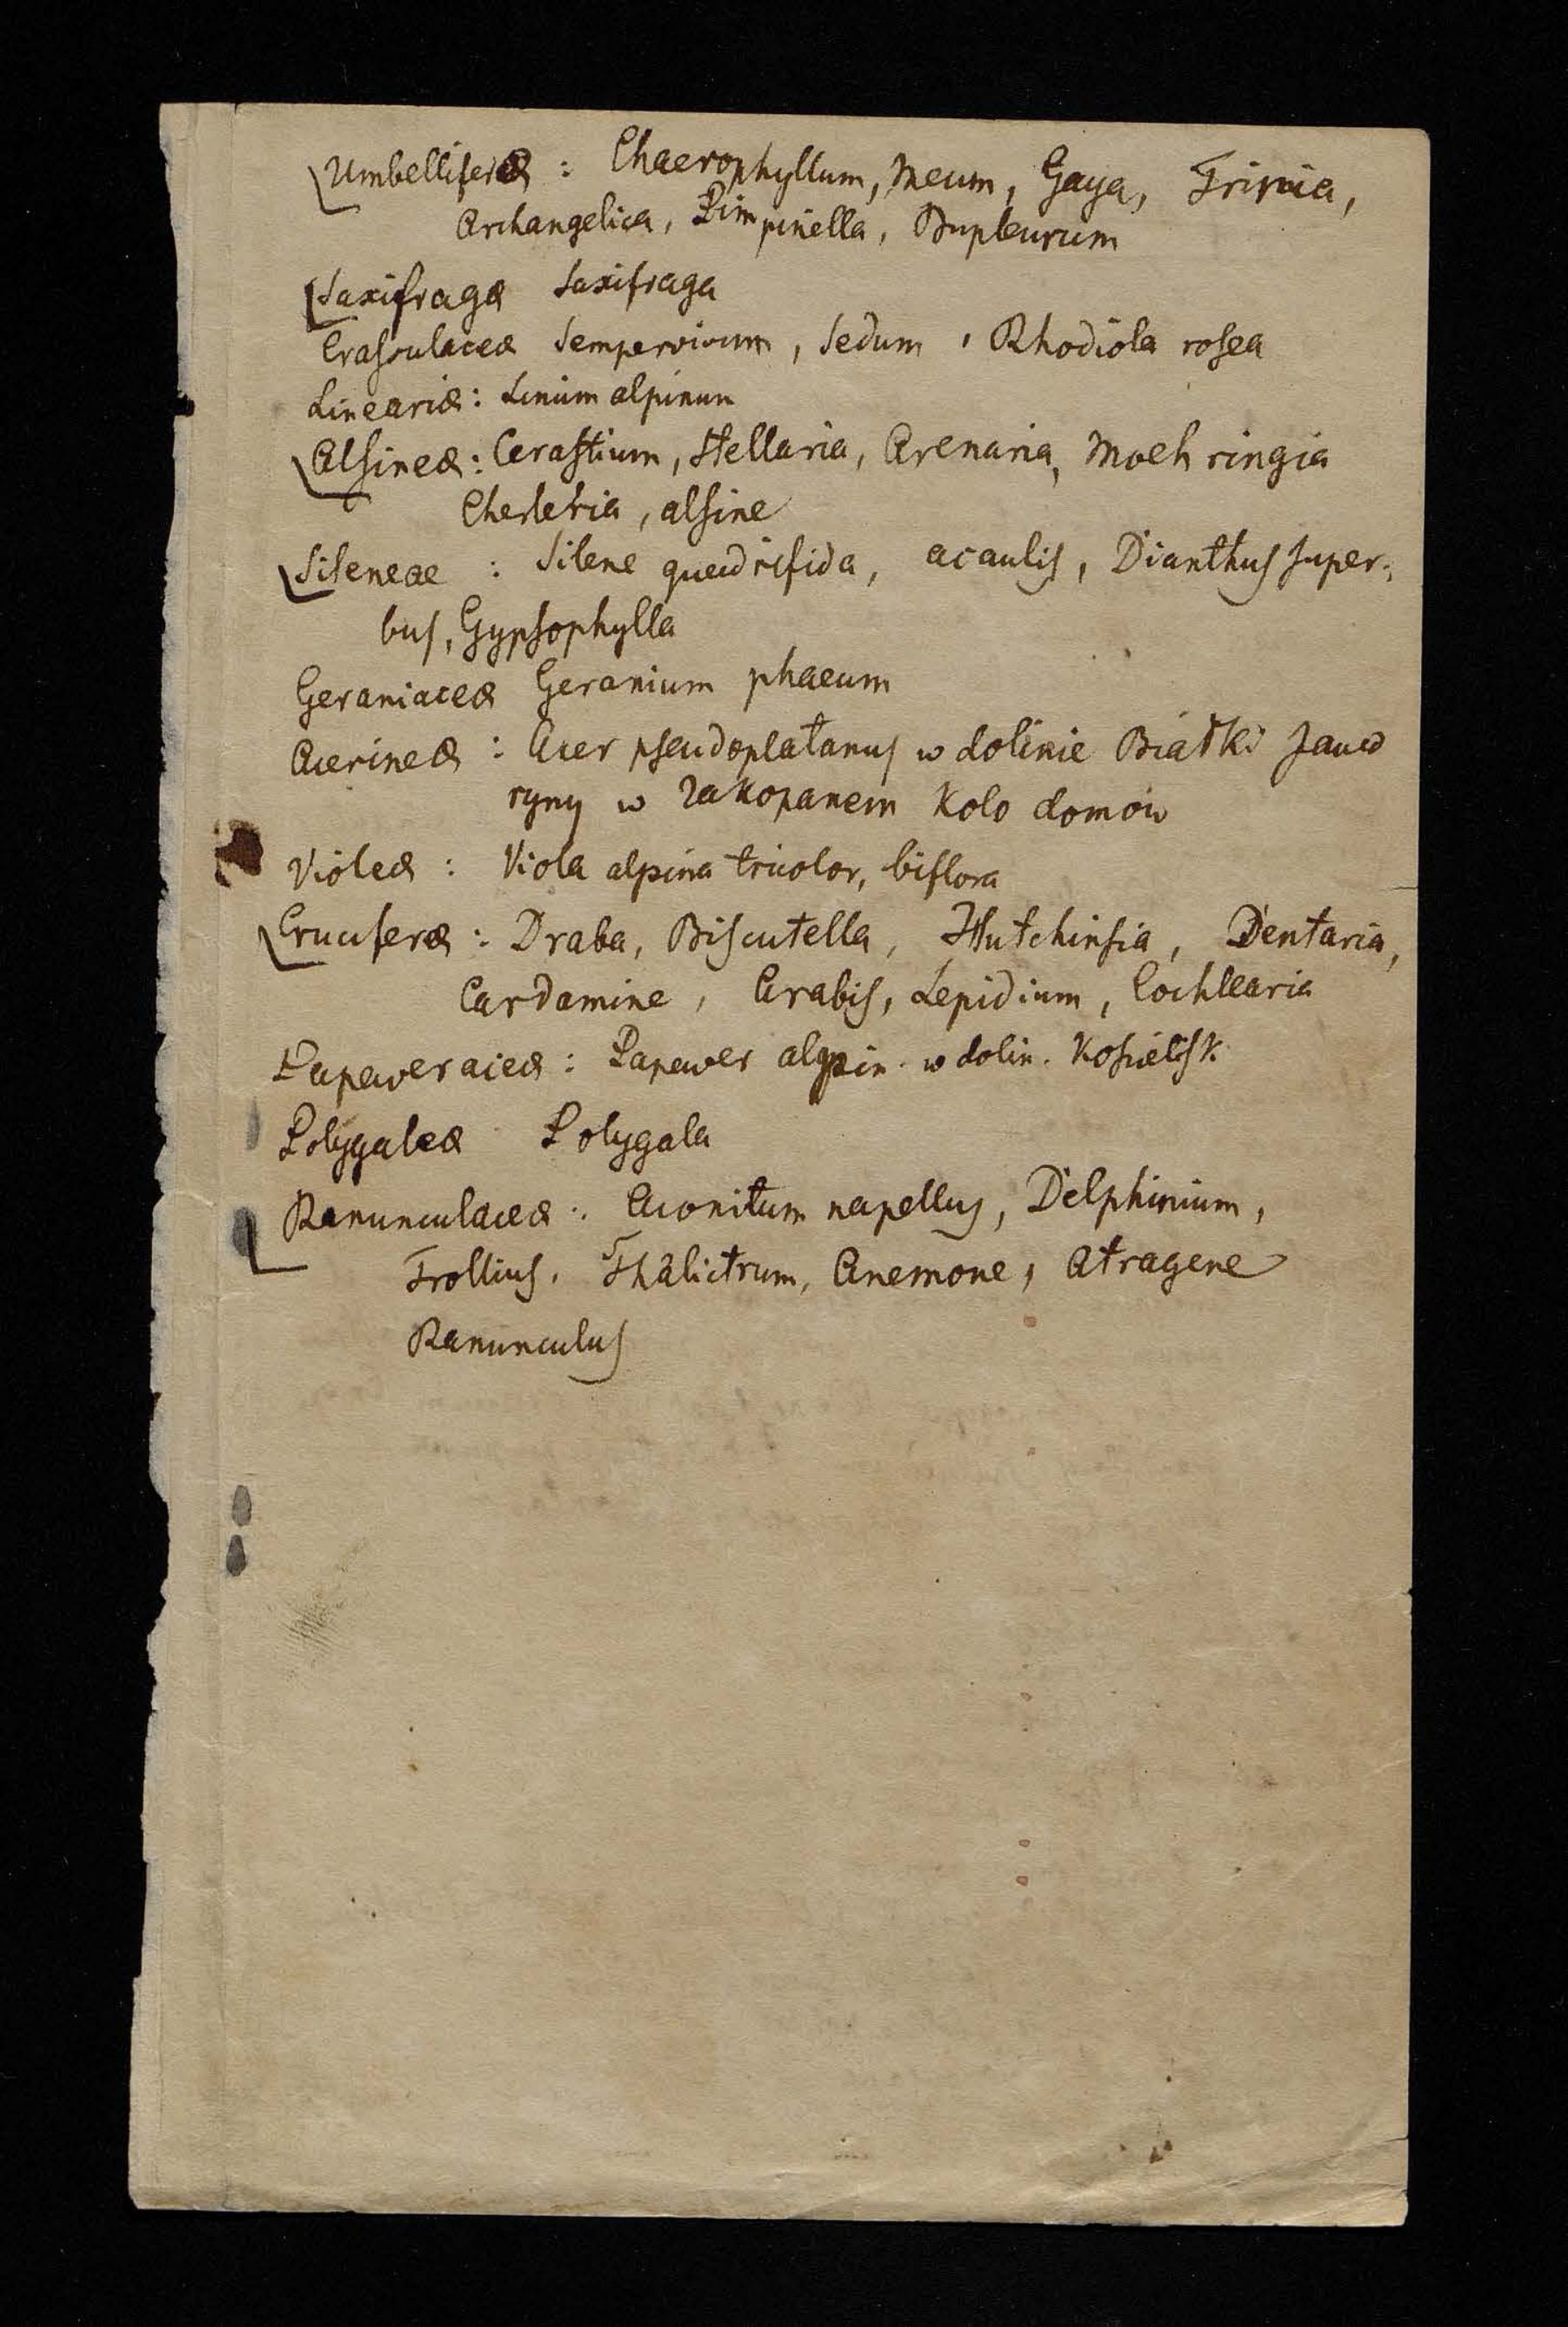 Umbelliferæ : Chaerophyllum, Meum, Gaya, Trinia,
Archangelica, Pimpinella, Bupleurum
Saxifragæ Saxifraga
Crassulaceæ Sempervivum, Sedum, Rhodiola rosea
Lineariæ : Linum alpinum
Alsineæ : Cerastium, Stellaria, Arenaria, Moehringia
Cherleria, alsine
Sileneae : Silene quadrifida, acaulis, Dianthus super-
bus, Gypsophylla
Geraniaceæ Geranium phaeum
Acerineæ : Acer pseudoplatanus w dolinie Białki Jawo
ryny w Zakopanem kolo domów
Violeæ : Viola alpina tricolor, biflora
Cruciferæ : Draba, Biscutella, Hutchinsia, Dentaria,
Cardamine, Arabis, Lepidium, Cochlearia
Papaveraceæ : Papaver alpin. w dolin. Kościelisk
Polygaleæ Polygala
Ranunculaceæ : Aconitum napellus, Delphinium,
Trollius, Thalictrum, Anemone, Atragene
Ranunculus